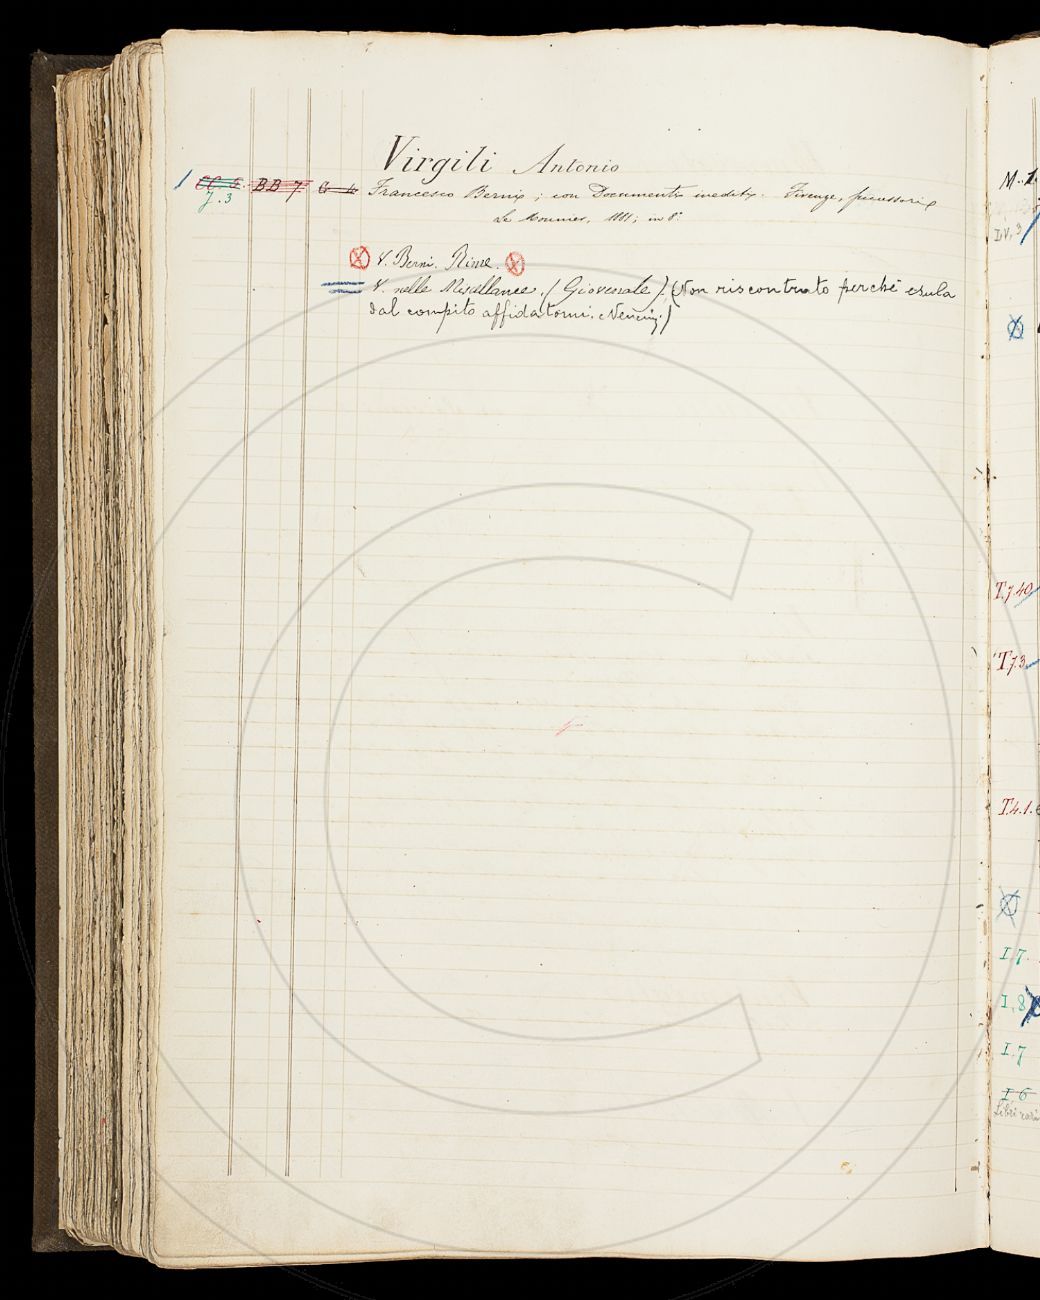 Virgili Antonio
CC. 5. BB 7 G 4 Francesco Berni; con Documenti inediti. Firenze, successori
J. 3
Le Monnier, 1881; in 8°
V. Berni. Rime.
V. nelle Miscellanee. (Giovenale) (Non riscontrato perché esula
dal compito affidatomi. Nencini.)
M. 1.
T.7.40
T.7.3
T.4.1.
I.7.
I.8
I.7
I 6
Libri rari